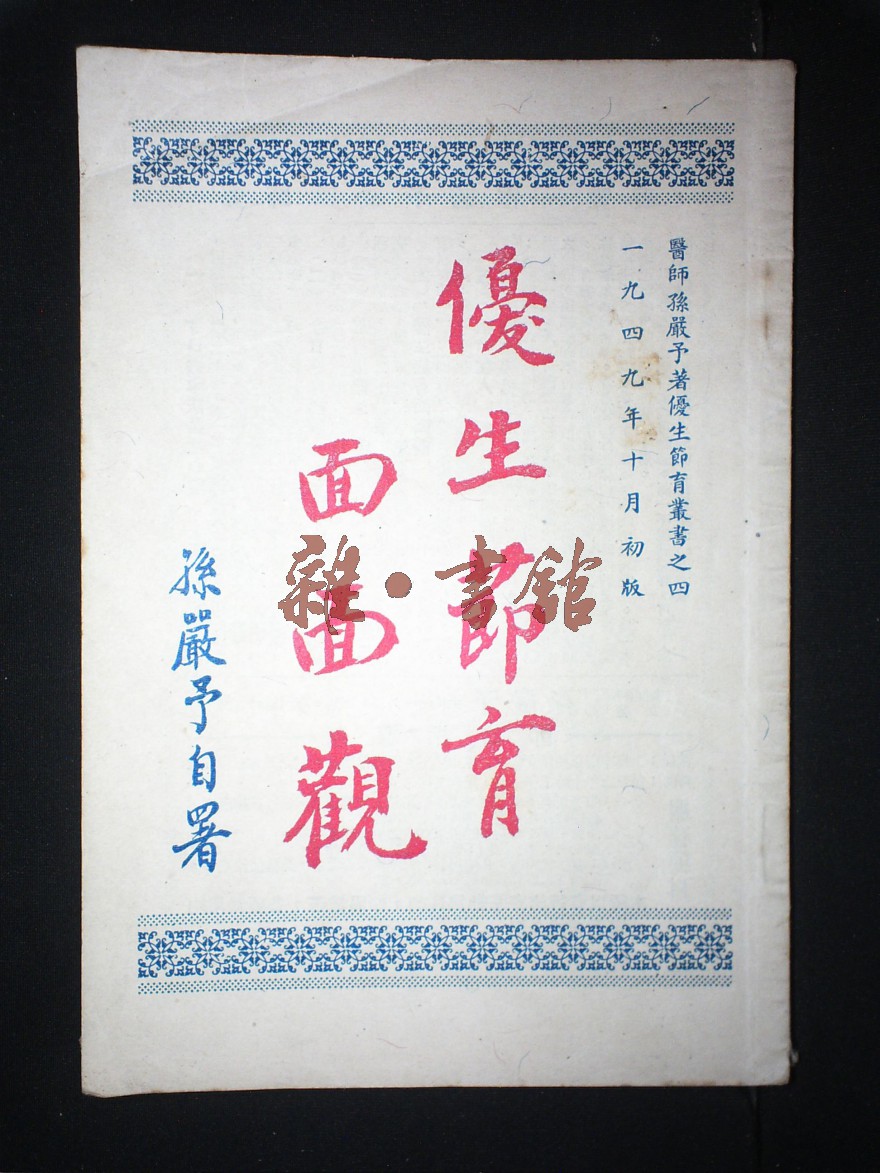 醫師孫嚴予著優生節育叢書之四
一九四九年十月初版
優生節育
面面觀
孫嚴予自署
雜·書館